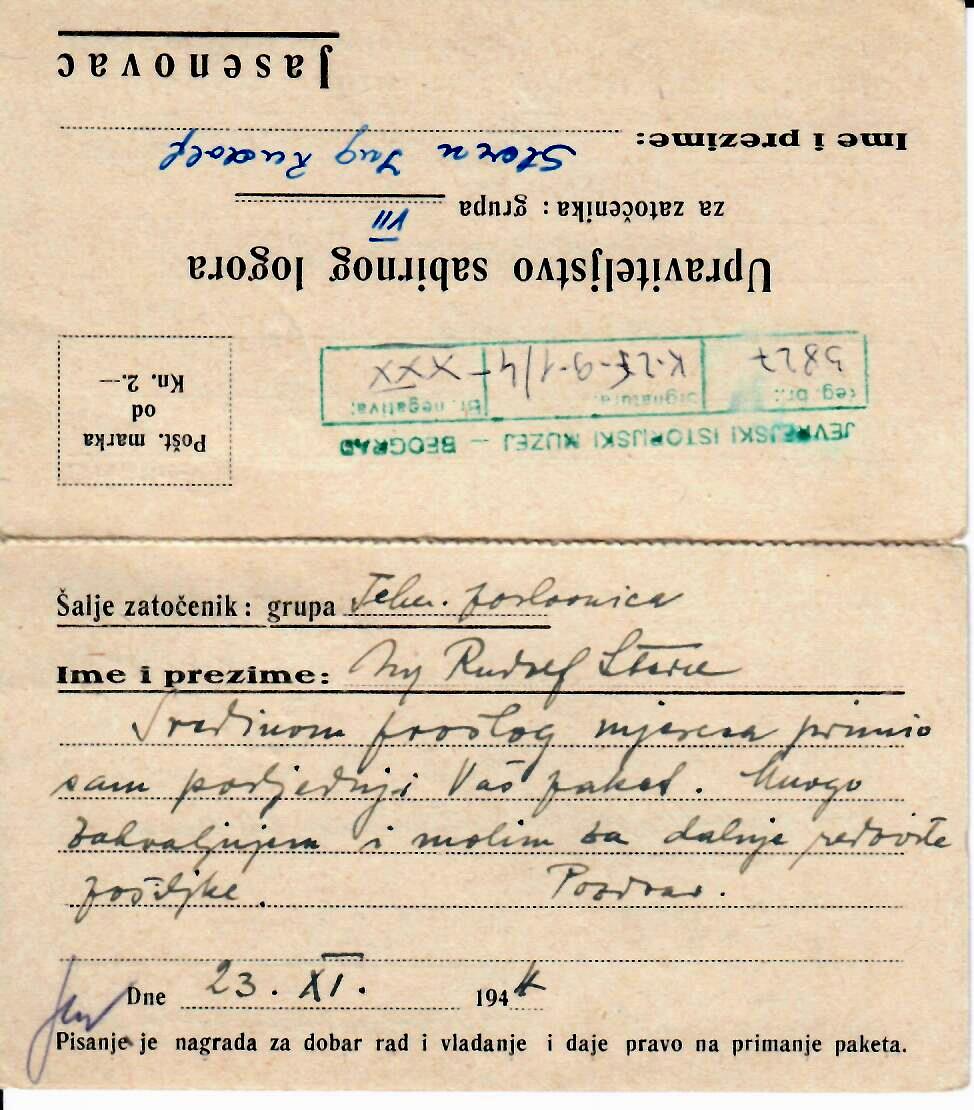 Jasenovac
Ime i prezime: Ing Rudolf
VII
za zatočenika : grupa
Upraviteljstvo sabirnog logora
Pošt. marka
od
Kn. 2.—
5827 K.25-9-1/4 — XXX
reg. br.: signatura: br. negativa:
JEVREJSKI ISTORIJSKI MUZEJ — BEOGRAD
Šalje zatočenik : grupa Tehn. poslovnica
Ime i prezime: Ing Rudolf
Sredinom prošlog mjeseca primio
sam posljednji Vaš paket. Mnogo
zahvaljujem i molim za daljnje redovite
pošiljke. Pozdrav.
Dne 23. XI. 1944
Pisanje je nagrada za dobar rad i vladanje i daje pravo na primanje paketa.